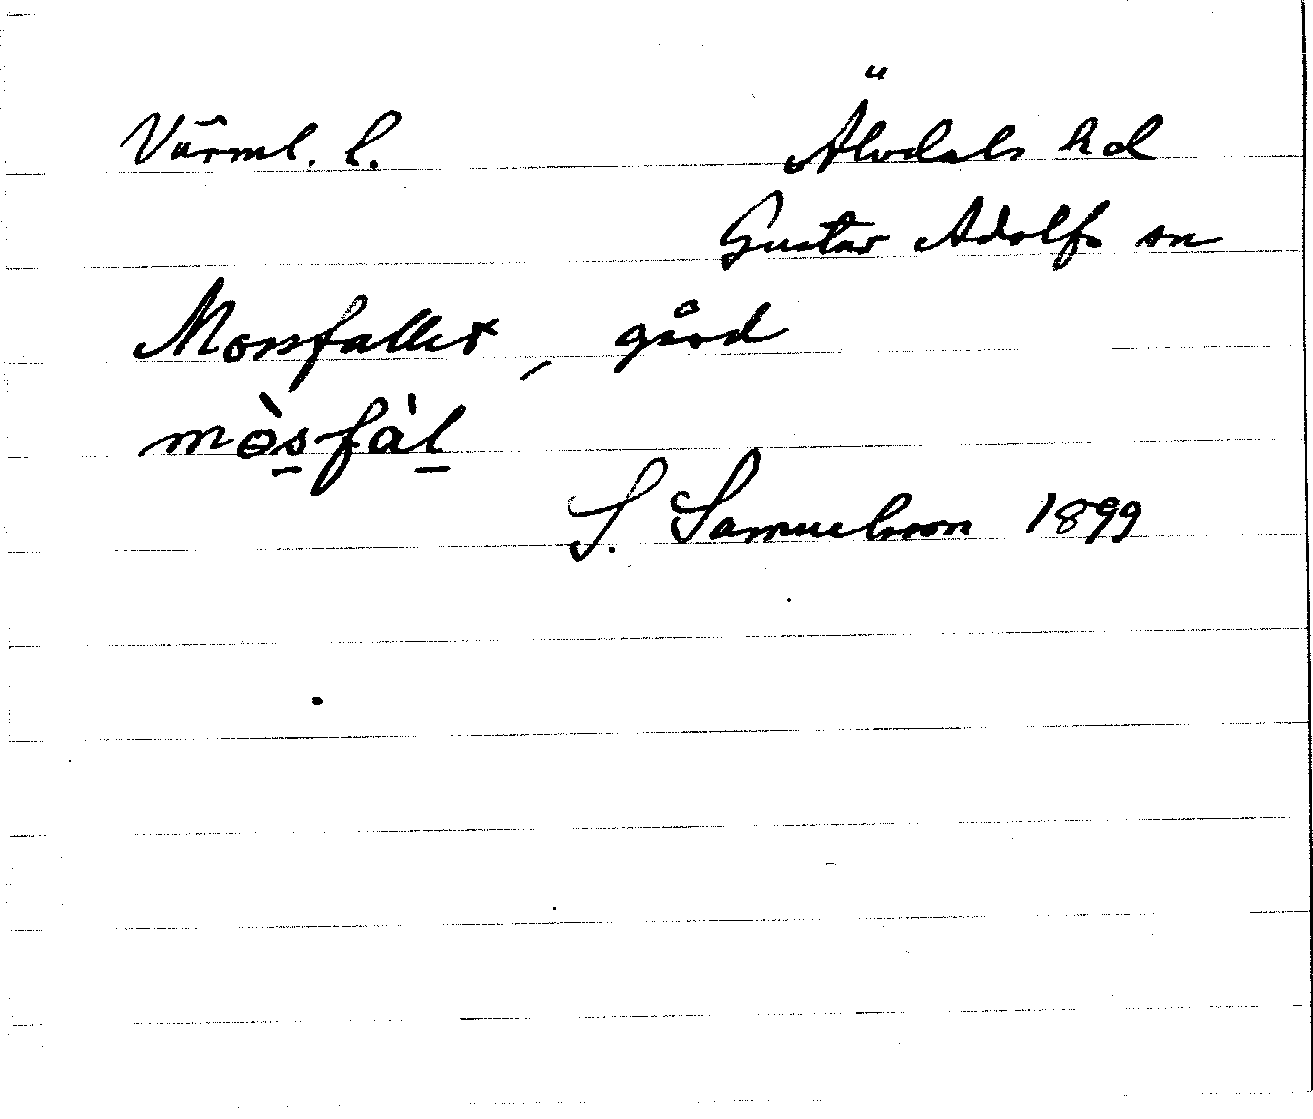 Värml. l.
Älvdals hd
Gustav Adolfs sn
Mossfallet, gård
mòs̲fàl̲
S. Samuelsson 1899